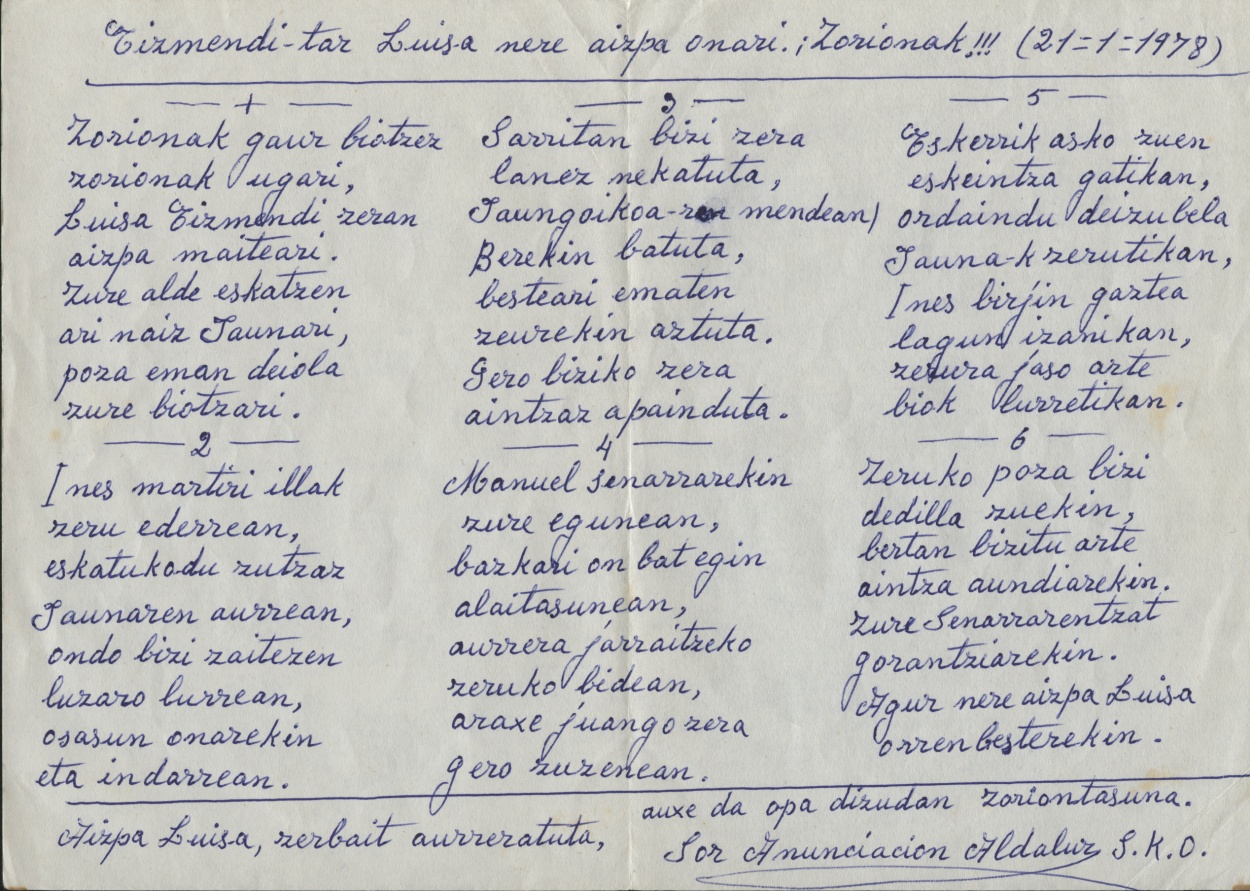 Eizmendi-tar Luisa nere aizpa onari. ¡Zorionak!!! (21=1=1978)
1
Zorionak gaur biotzez
zorionak ugari,
Luisa Eizmendi zeran
aizpa maiteari.
Zure alde eskatzen
ari naiz Jaunari,
poza eman deiola
zure biotzari.
2
Ines martiri illak
zeru ederrean,
eskatukodu zutzaz
Jaunaren aurrean,
ondo bizi zaitezen
luzaro lurrean,
osasun onarekin
eta indarrean.
3
Sarritan bizi zera
lanez nekatuta,
Jaungoikoa-ren mendean)
Berekin batuta,
besteari ematen
zeurekin aztuta.
Gero biziko zera
aintzaz apainduta.
4
Manuel senarrarekin
zure egunean,
bazkari on bat egin
alaitasunean,
aurrera jarraitzeko
zeruko bidean,
araxe juango zera
gero zuzenean.
5
Eskerrik asko zuen
eskeintza gatikan,
ordaindu deizubela
Jauna-k zerutikan,
Ines birjin gaztea
lagun izanikan,
zerura jaso arte
biok lurretikan.
6
Zeruko poza bizi
dedilla zuekin,
bertan bizitu arte
aintza aundiarekin.
Zure Senarrarentzat
gorantziarekin.
Agur nere aizpa Luisa
orrenbesterekin.
Aizpa Luisa, zerbait aurreratuta,
auxe da opa dizudan zoriontasuna.
Sor Anunciacion Aldalur S.K.O.